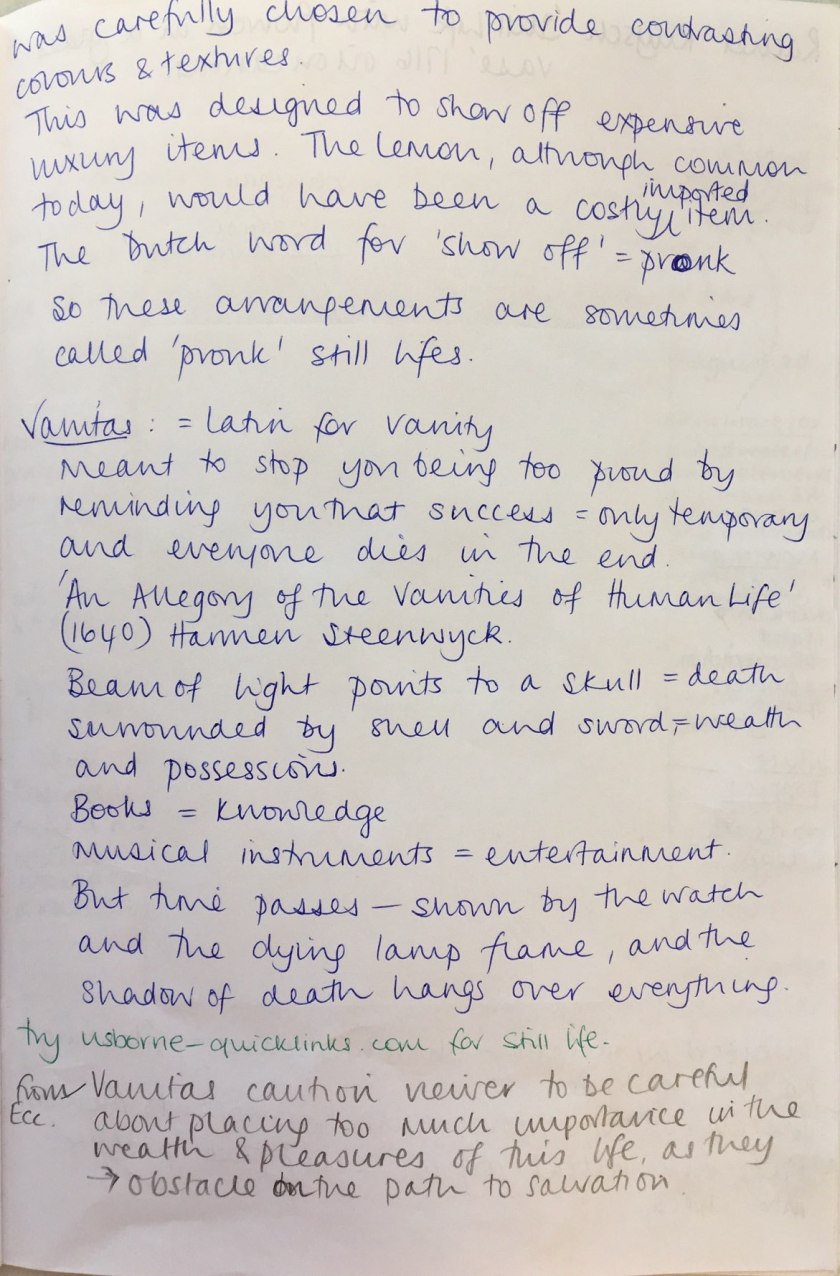 was carefully chosen to provide contrasting
colours & textures.
This was designed to show off expensive
luxury items. The lemon, although common
today, would have been a costly imported item.
The Dutch word for 'show off' = pronk
So these arrangements are sometimes
called 'pronk' still lifes.
Vanitas : = Latin for vanity
Meant to stop you being too proud by
reminding you that success = only temporary
and everyone dies in the end.
'An Allegory of the Vanities of Human Life'
(1640) Harmen Steenwyck.
Beam of light points to a skull = death
surrounded by shell and sword, = wealth
and possessions.
Books = Knowledge
Musical instruments = entertainment.
But time passes — shown by the watch
and the dying lamp flame, and the
shadow of death hangs over everything.
try usborne-quicklinks.com for still life.
from Vanitas caution viewer to be careful
Ecc. about placing too much importance in the
wealth & pleasures of this life, as they
→ obstacle on the path to salvation.